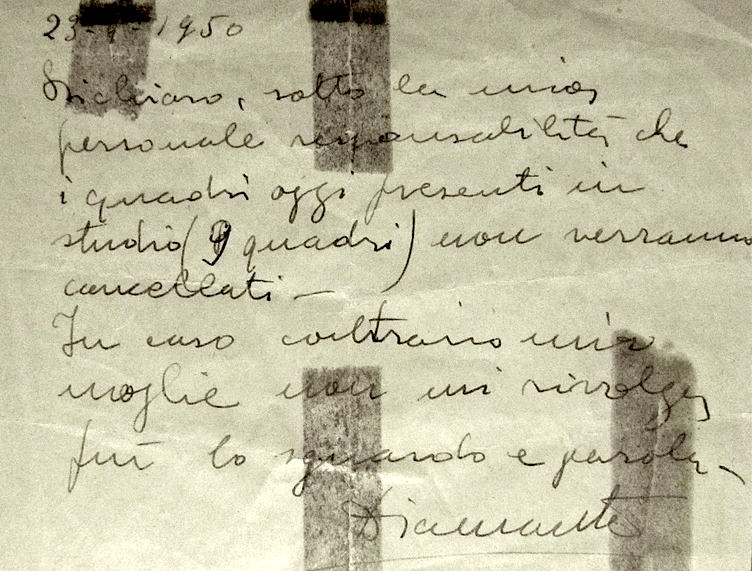 23-9-1950
Dichiaro, sotto la mia
personale responsabilità che
i quadri oggi presenti in
studio (9 quadri) non verranno
cancellati —
In caso contrario mia
moglie non mi rivolga
più lo sguardo e parola —
Diamante